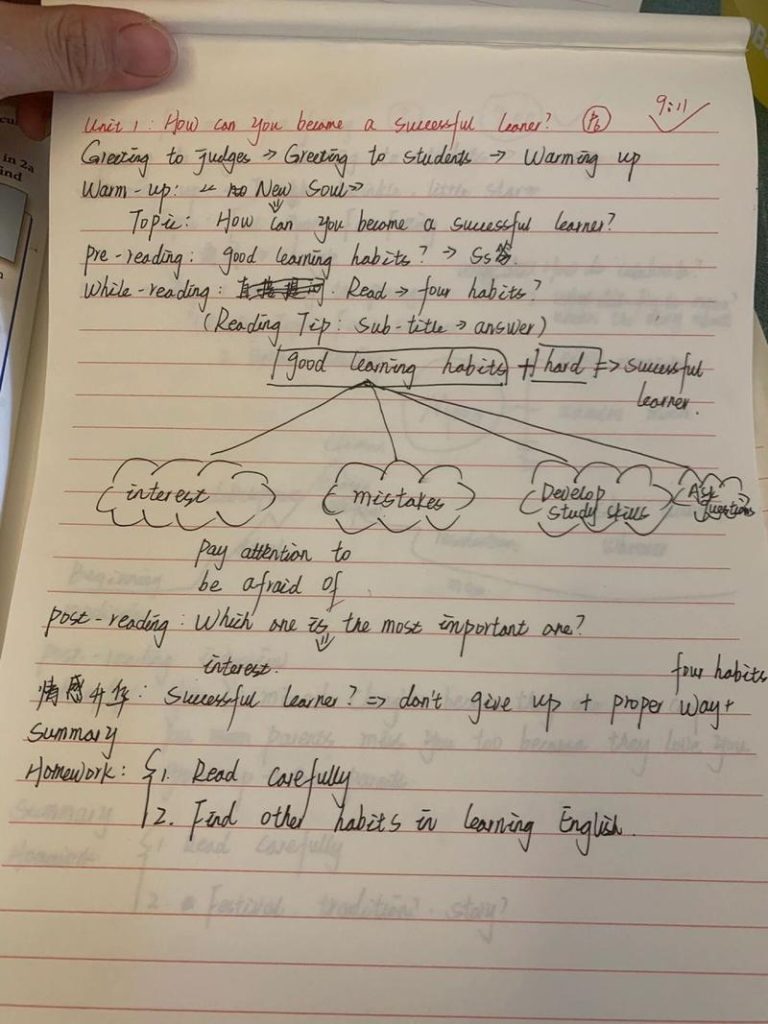 Unit 1: How can you become a successful leaner? P6 9:11
Greeting to judges → Greeting to students → Warming up
Warm-up: 《 New Soul》
Topic: How can you become a successful learner?
Pre-reading: good learning habits? → Ss答.
While-reading: Read → four habits?
(Reading Tip: Sub-title → answer)
good learning habits + hard => successful
learner.
interest mistakes Develop study skills Ask questions
Pay attention to
be afraid of
Post-reading: Which one is the most important one?
interest.
four habits
情感升华: Successful learner? => don't give up + proper way+
Summary
Homework: { 1. Read carefully
2. Find other habits in learning English.